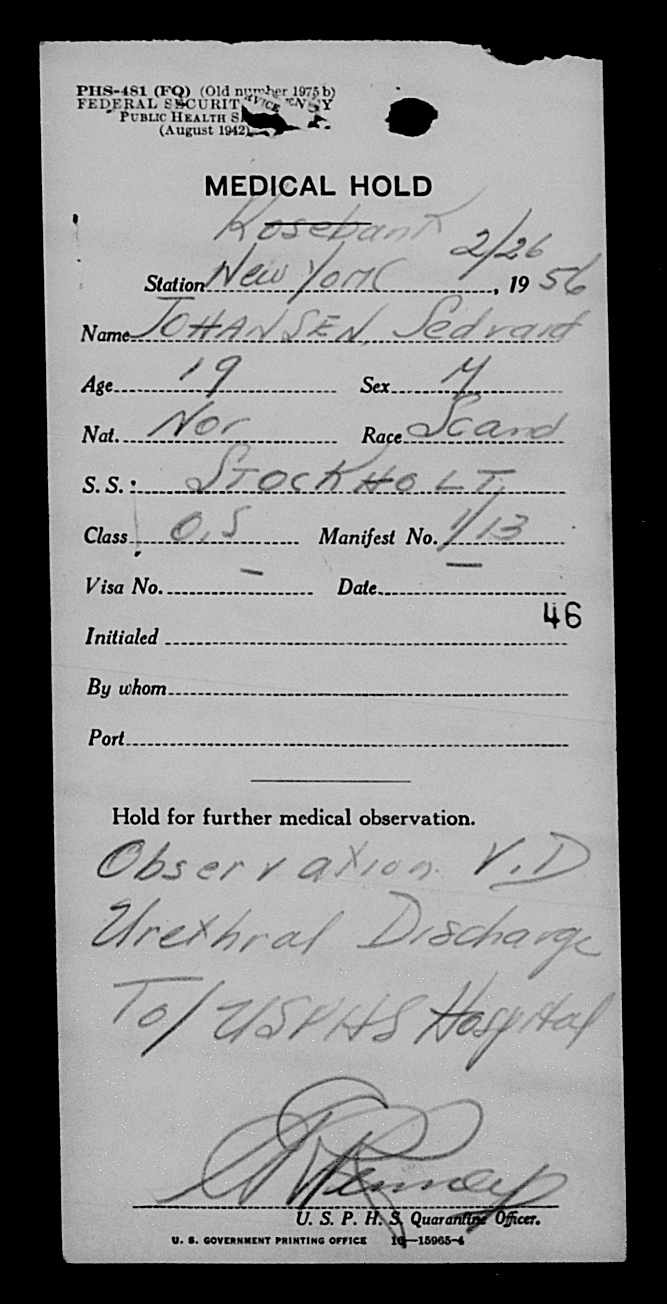 PHS-481 (FQ) (Old number 1975 b)
FEDERAL SECURIT
PUBLIC HEALTH S
(August 1942)
MEDICAL HOLD
Rosebank
2/26
Station New York, 19 56
Name JOHANSEN, Sedvard
Age 19 Sex M
Nat. Nor Race Scand
S. S. STOCKHOLT
Class O.S Manifest No. 1/13
Visa No. — Date —
46
Initialed
By whom
Port
Hold for further medical observation.
Observation V.D
Urethral Discharge
To/ USPHS Hospital
U. S. P. H. S. Quarantine Officer.
U. S. GOVERNMENT PRINTING OFFICE 16—15965-4